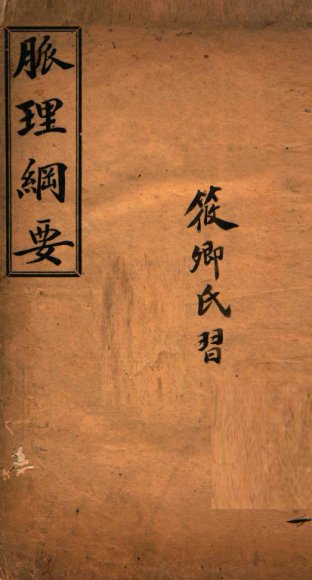 脈理綱要
筱卿氏習